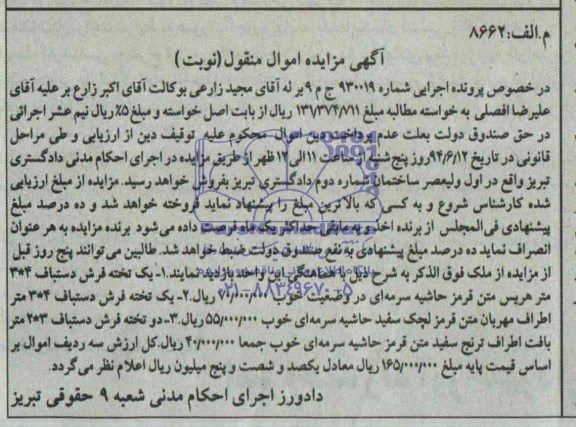 م.الف:۸۶۶۲
آگهی مزایده اموال منقول (نوبت)
در خصوص پرونده اجرایی شماره ۹۳۰۰۱۹ ج م ۹ بر له آقای مجید زارعی بوکالت آقای اکبر زارع بر علیه آقای
علیرضا افضلی به خواسته مطالبه مبلغ ۱۳۷/۳۷۴/۷۱۱ ریال از بابت اصل خواسته و مبلغ ۵٪ ریال نیم عشر اجرائی
در حق صندوق دولت بعلت عدم پرداخت دین اموال محکوم علیه توقیف دین از ارزیابی و طی مراحل
قانونی در تاریخ ۹۴/۶/۱۲ روز پنج شنبه از ساعت ۱۱ الی ۱۲ ظهر از طریق مزایده در اجرای احکام مدنی دادگستری
تبریز واقع در اول ولیعصر ساختمان شماره دوم دادگستری تبریز بفروش خواهد رسید. مزایده از مبلغ ارزیابی
شده کارشناس شروع و به کسی که بالاترین مبلغ را پیشنهاد نماید فروخته خواهد شد و ده درصد مبلغ
پیشنهادی فی المجلس از برنده اخذ و به مابقی حداکثر یک ماه فرصت داده می شود برنده مزایده به هر عنوان
انصراف نماید ده درصد مبلغ پیشنهادی به نفع صندوق دولت ضبط خواهد شد. طالبین می توانند پنج روز قبل
از مزایده از ملک فوق الذکر به شرح ذیل با هماهنگی این واحد بازدید نمایند.۱- یک تخته فرش دستباف ۴*۳
متر هریس متن قرمز حاشیه سرمه ای در وضعیت خوب ۷۱/۰۰۰/۰۰۰ ریال.۲- یک تخته فرش دستباف ۴*۳ متر
اطراف مهربان متن قرمز لچک سفید حاشیه سرمه ای خوب ۵۵/۰۰۰/۰۰۰ ریال.۳- دو تخته فرش دستباف ۳*۲ متر
بافت اطراف ترنج سفید متن قرمز حاشیه سرمه ای خوب جمعا ۴۰/۰۰۰/۰۰۰ ریال. کل ارزش سه ردیف اموال بر
اساس قیمت پایه مبلغ ۱۶۵/۰۰۰/۰۰۰ ریال معادل یکصد و شصت و پنج میلیون ریال اعلام نظر می گردد.
دادورز اجرای احکام مدنی شعبه ۹ حقوقی تبریز
۰۲۱-۸۸۳۴۹۶۷۰-۵